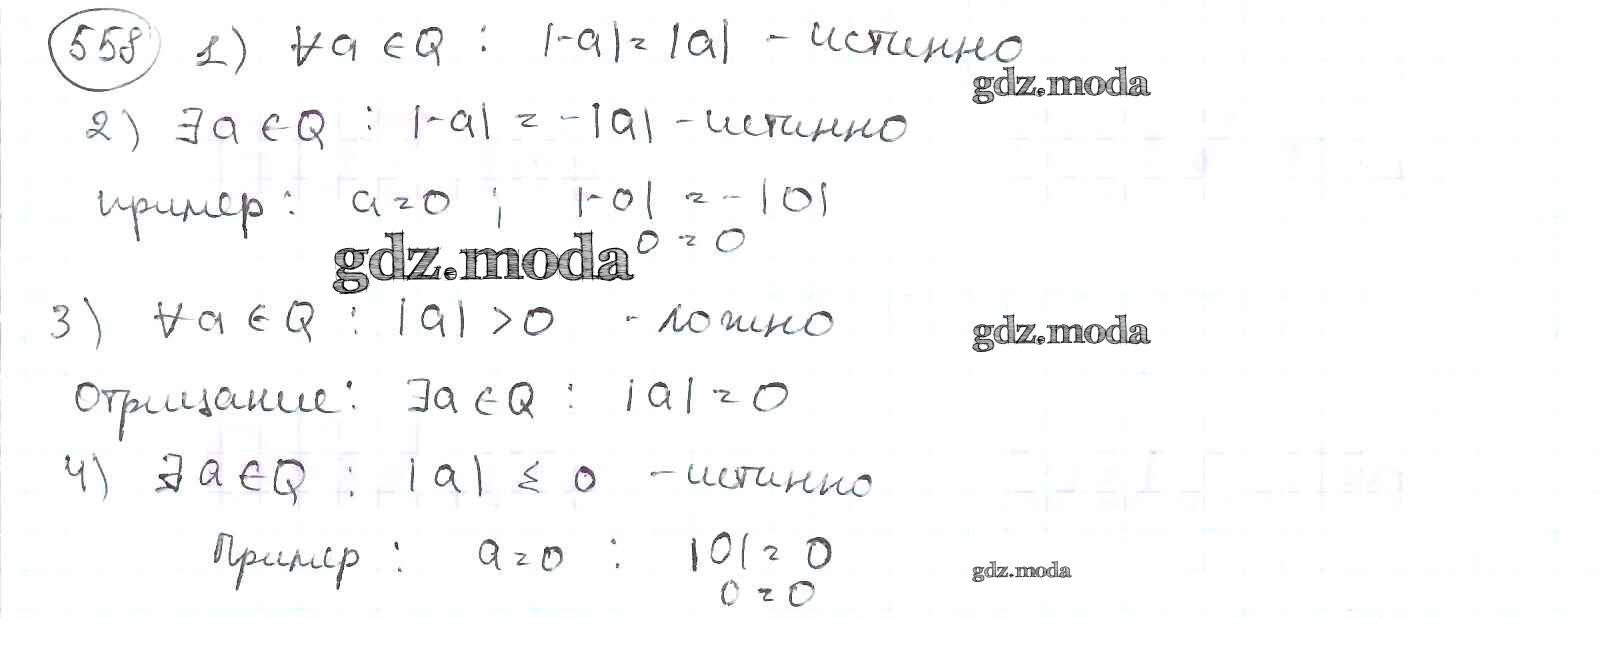 558 1) ∀a ∈ Q : |-a| = |a| - истинно
gdz.moda
2) ∃a ∈ Q : |-a| = -|a| - истинно
пример: a=0 ; |-0| = -|0|
0 = 0
gdz.moda
3) ∀a ∈ Q : |a| > 0 - ложно
gdz.moda
Отрицание: ∃a ∈ Q : |a| = 0
4) ∃a ∈ Q : |a| ≤ 0 - истинно
Пример : a=0 : |0| = 0
gdz.moda
0 = 0